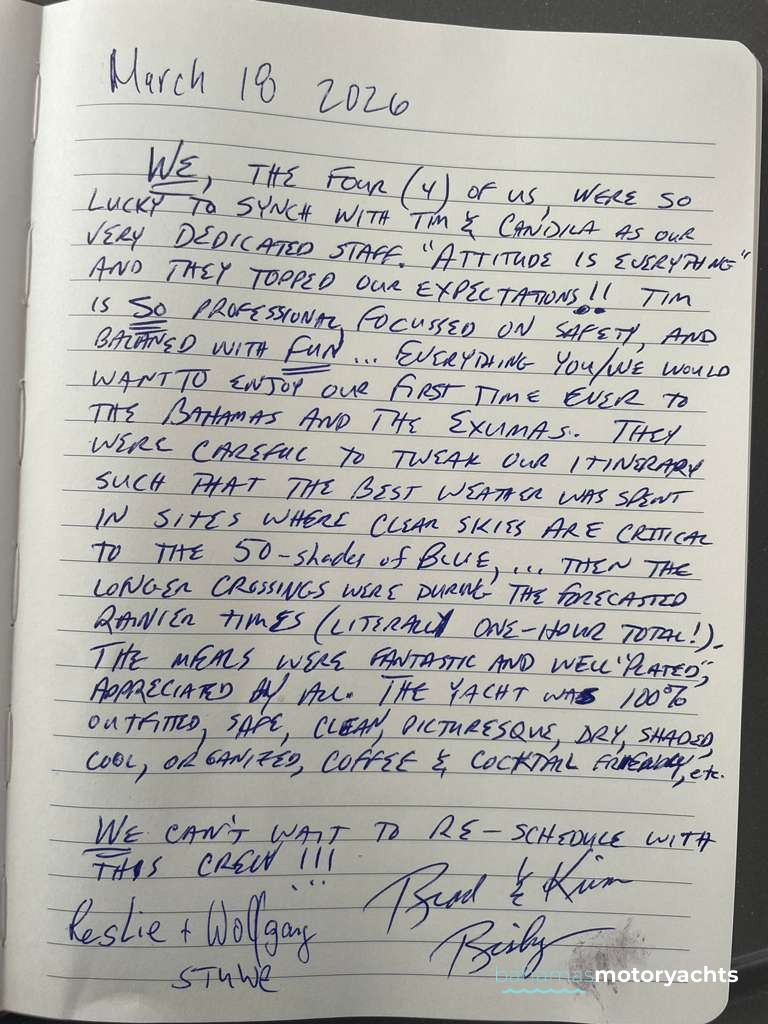 March 18 2026
WE, THE FOUR (4) OF US, WERE SO
LUCKY TO SYNCH WITH TIM & CANDIRA AS OUR
VERY DEDICATED STAFF. "ATTITUDE IS EVERYTHING"
AND THEY TOPPED OUR EXPECTATIONS!! TIM
IS SO PROFESSIONAL, FOCUSSED ON SAFETY, AND
BALANED WITH FUN... EVERYTHING YOU/WE WOULD
WANT TO ENJOY OUR FIRST TIME EVER TO
THE BAHAMAS AND THE EXUMAS. THEY
WERE CAREFUL TO TWEAK OUR ITINERARY
SUCH THAT THE BEST WEATHER WAS SPENT
IN SITES WHERE CLEAR SKIES ARE CRITICAL
TO THE 50-shades of BLUE, ... THEN THE
LONGER CROSSINGS WERE DURING THE FORECASTED
RAINIER TIMES (LITERALLY ONE-HOUR TOTAL!).
THE MEALS WERE FANTASTIC AND WELL "PLATED",
APPRECIATED BY ALL. THE YACHT WAS 100%
OUTFITTED, SAFE, CLEAN, PICTURESQUE, DRY, SHADED,
COOL, ORGANIZED, COFFEE & COCKTAIL FRIENDLY, etc.
WE CAN'T WAIT TO RE-SCHEDULE WITH
THIS CREW!!!
Brad & Kim
Leslie + Wolfgang
STUWE
bahamasmotoryachts